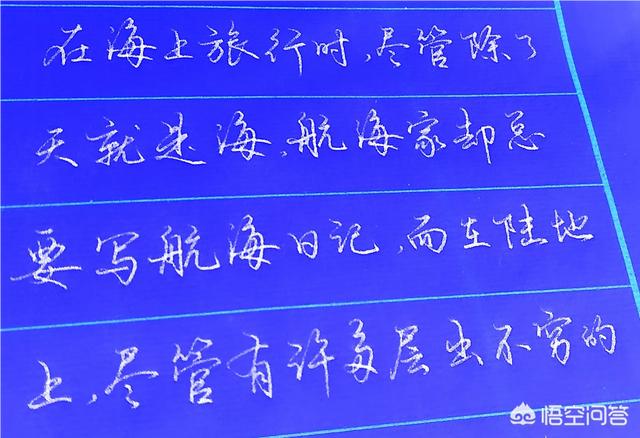 在海上旅行时,尽管除了
天就是海,航海家却总
要写航海日记,而在陆地
上,尽管有许多层出不穷的
悟空问答